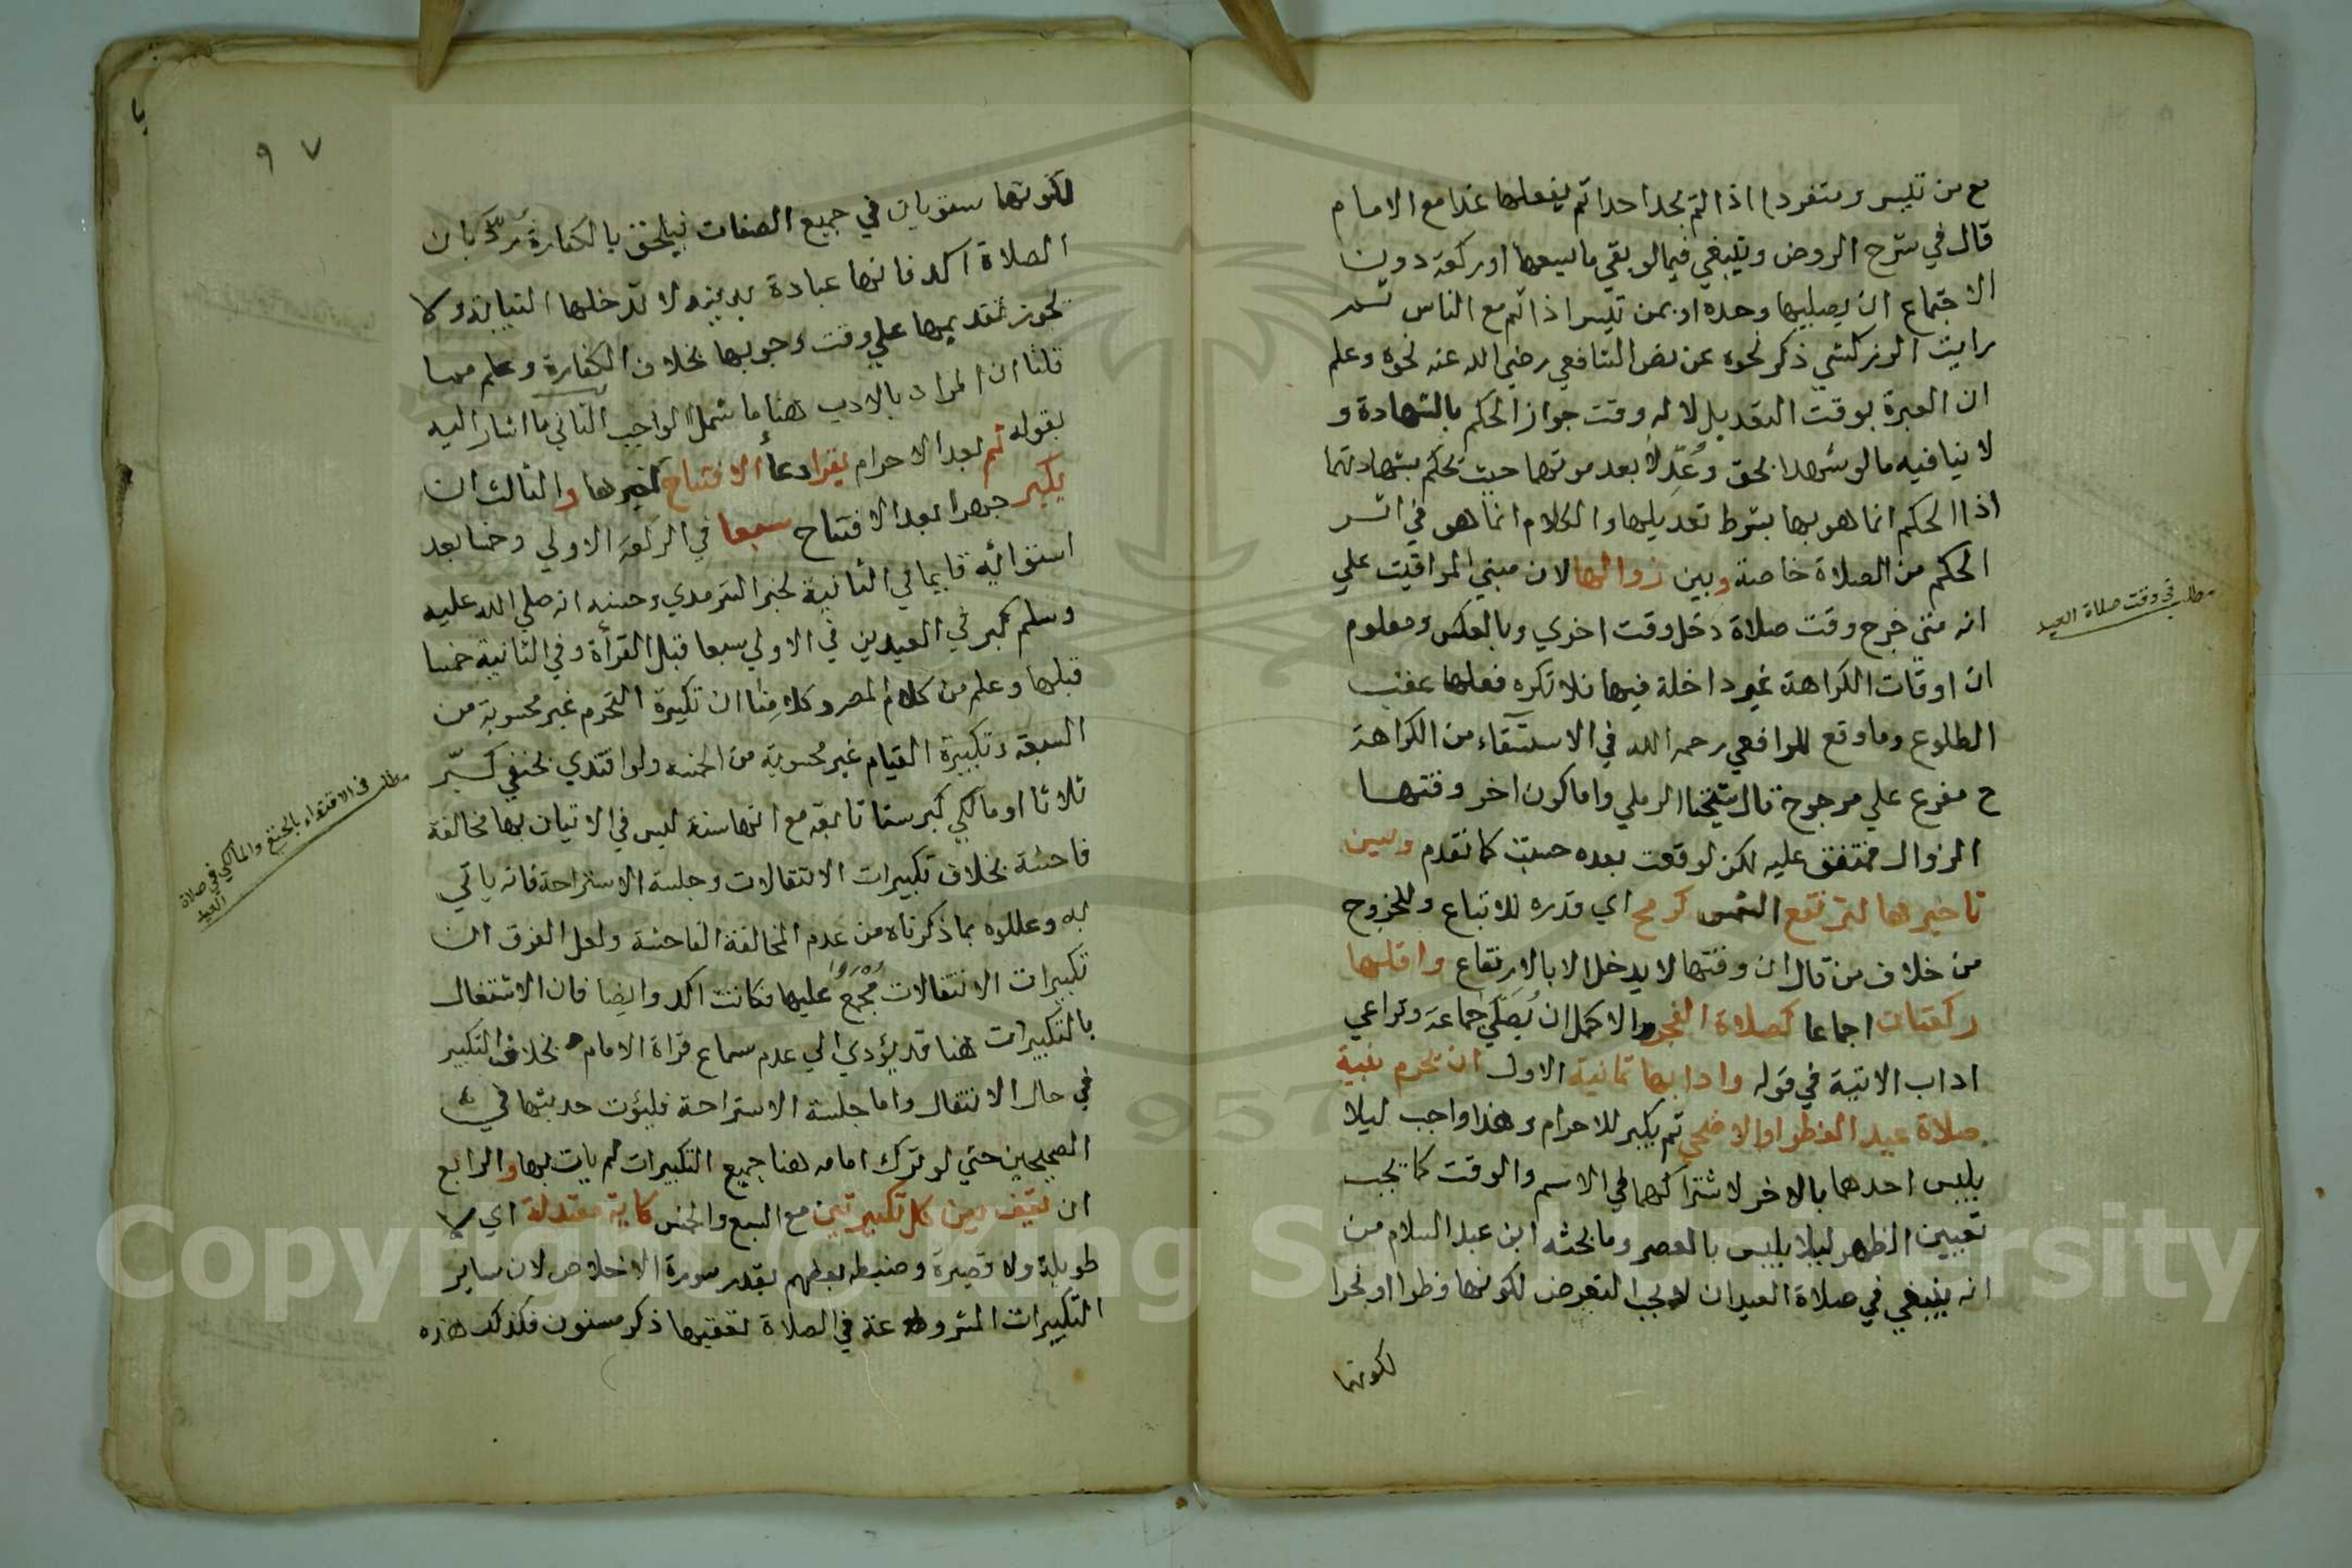 مع من تيسر ومنفردا اذا لم يجد احدا ثم يفعلها غدا مع الامام
قال في شرح الروض وينبغي فيما لو بقي ما يسعها او ركعة دون
الاجتماع ان يصليها وحده او بمن تيسر اذا ثم مع الناس ثم
رايت الزركشي ذكر نحوه عن نص الشافعي رضي الله عنه نحوه وعلم
ان العبرة بوقت التعديل لانه وقت جواز الحكم بالشهادة و
لا ينافيه ما لو شهدا بحق وعُدِّلا بعد موتهما حيث يحكم بشهادتهما
اذ الحكم انما هو بها بشرط تعديلها والكلام انما هو في اثر
الحكم من الصلاة خاصة وبين زوالها لان مبني المواقيت علي
انه متي خرج وقت صلاة دخل وقت اخري وبالعكس ومعلوم
ان اوقات الكراهة غير داخلة فيها فلا تكره فعلها عقب
الطلوع وما وقع للرافعي رحمه الله في الاستسقاء من الكراهة
ح مفرع علي مرجوح قال شيخنا الرملي واما كون اخر وقتها
الزوال فمتفق عليه لكن لو وقعت بعده حسبت كما تقدم وسن
تاخيرها لترتفع الشمس كرمح اي قدره للاتباع وللخروج
من خلاف من قال ان وقتها لا يدخل الا بالارتفاع واقلها
ركعتان اجماعا كصلاة الفجر والاكمل ان يُصَلّي جماعة وتراعي
اداب الاتية في قوله وادابها ثمانية الاول ان يحرم بنية
صلاة عيد الفطر او الاضحي ثم يكبر للاحرام وهذا واجب ليلا
يلبس احدهما بالاخر لاشتراكهما في الاسم والوقت كما يجب
تعيين الظهر ليلا يلبس بالعصر وما بحثه ابن عبد السلام من
انه ينبغي في صلاة العيد ان لا يجب التعرض لكونها فطرا او نحرا
لكونهما
مطلب في وقت صلاة العيد
٩٧
لكونها ستويان في جميع الصفات فيلحق بالكفارة رُدَّ بان
الصلاة اكد فانها عبادة بدنية لا تدخلها النيابة ولا
يجوز تقديمها علي وقت وجوبها بخلاف الكفارة وعلم مما
قلنا ان المراد بالادب هنا ما شمل الواجب الثاني ما اشار اليه
بقوله ثم بعد الاحرام يقرا دعا الافتتاح كغيرها والثالث ان
يكبر جهرا بعد الافتتاح سبعا في الركعة الاولي وخمسا بعد
استوائه قايما في الثانية لخبر الترمذي وحسنه انه صلي الله عليه
وسلم كبر في العيدين في الاولي سبعا قبل القرأة وفي الثانية خمسا
قبلها وعلم من كلام المصر وكلامنا ان تكبيرة التحرم غير محسوبة من
السبعة وتكبيرة القيام غير محسوبة من الخمسة ولو اقتدي بحنفي كبّر
ثلاثا او مالكي كبر ستا تابعه مع انها سنة ليس في الاتيان بها مخالفة
فاحشة بخلاف تكبيرات الانتقالات وجلسة الاستراحة فانه ياتي
به وعللوه بما ذكرناه من عدم المخالفة الفاحشة ولعل الفرق ان
تكبيرات الانتقالات مُجْمَعٌ عليها فكانت اكد وايضا فان الاشتغال
بالتكبيرات هنا قد يؤدي الي عدم سماع قراة الامام بخلاف التكبير
في حال الانتقال واما جلسة الاستراحة فلثبوت حديثها في
الصحيحين حتي لو ترك امامه هنا جميع التكبيرات لم يات بها والرابع
ان يقف بين كل تكبيرتين مع السبع والخمس كاية معتدلة اي لا
طويلة ولا قصيرة وضبطه بعضهم بقدر سورة الاخلاص لان ساير
التكبيرات المشروعة في الصلاة تعقبها ذكر مسنون فكذلك هذه
مطلب في الاقتداء بالحنفي والمالكي في صلاة
العيد
Copyright © King Saud University
957